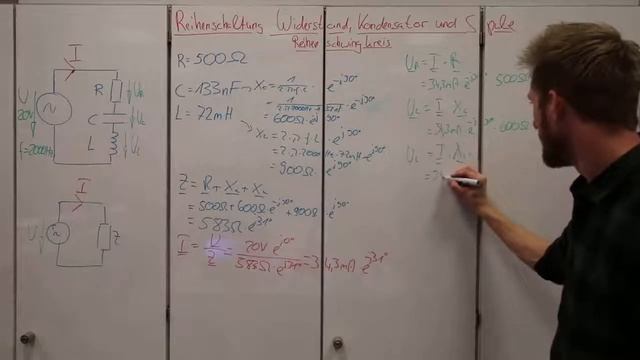 Reihenschaltung Widerstand, Kondensator und S pule
Reihenschwingkreis
I
R
C
L
U
20V
f=2000Hz
U_R
U_C
U_L
I
U
Z
R = 500Ω
C = 133nF → X_C = 1 / 2·π·f·C · e^-j90°
= 600Ω · e^-j90°
L = 72mH
X_L = 2·π·f·L · e^j90°
= 2·π·2000Hz·72mH · e^j90°
= 900Ω · e^j90°
Z = R + X_C + X_L
= 500Ω + 600Ω · e^-j90° + 900Ω · e^j90°
= 583Ω · e^j31°
I = U / Z = 20V e^j0° / 583Ω · e^j31° = 34,3mA e^-j31°
U_R = I · R
= 34,3mA · 500Ω
U_C = I · X_C
= 34,3mA · 600Ω
U_L = I · X_L
=